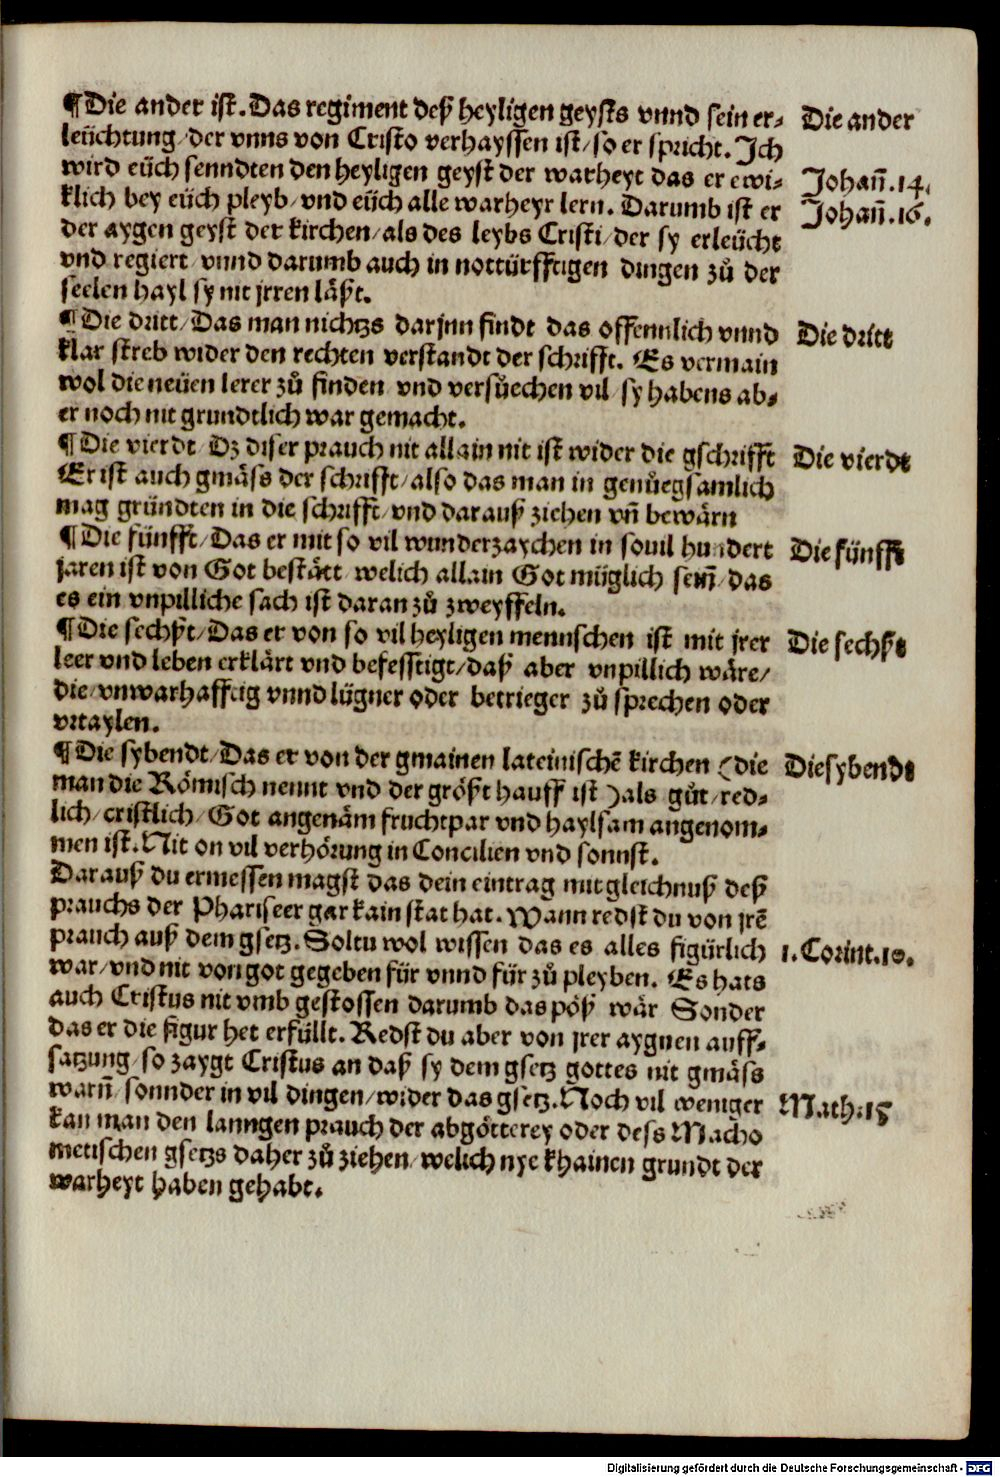 ¶Die ander ist. Das regiment deß heyligen geysts vnnd sein er⸗
Die ander
leüchtung/der vnns von Cristo verhayssen ist/so er spricht. Ich
wird eüch senndten den heyligen geyst der warheyt das er ewi⸗
Johañ.14.
klich bey eüch pleyb/vnd eüch alle warheyr lern. Darumb ist er
Johañ.16.
der aygen geyst der kirchen/als des leybs Cristi/der sy erleücht
vnd regiert/vnnd darumb auch in nottürfftigen dingen zů der
seelen hayl sy nit jrren läßt.
¶Die dritt/Das man nichtzs darjnn findt das offennlich vnnd
Die dritt
klar streb wider den rechten verstandt der schrifft. Es vermain
wol die neüen lerer zů finden vnd versůechen vil/sy habens ab⸗
er noch nit grundtlich war gemacht.
¶Die vierdt/Dz diser prauch nit allain nit ist wider die gschrifft
Die vierdt
Er ist auch gmäss der schrifft/also das man in genůegsamlich
mag gründten in die schrifft/vnd darauß ziehen vñ bewärn
¶Die fünfft/Das er mit so vil wunderzaychen in souil hundert
Die fünfft
jaren ist von Got bestätt/welich allain Got müglich seiñ/das
es ein vnpilliche sach ist daran zů zweyffeln.
¶Die sechßt/Das er von so vil heyligen mennschen ist mit jrer
Die sechßt
leer vnd leben erklärt vnd befesstigt/daß aber vnpillich wäre/
die/vnwarhafftig vnnd lügner oder betrieger zů sprechen oder
vrtaylen.
¶Die sybendt/Das er von der gmainen lateinischē kirchen (die
Die sybendt
man die Römisch nennt vnd der größt hauff ist) als gůt/red⸗
lich/cristlich/Got angenäm fruchtpar vnd haylsam angenom⸗
men ist. Nit on vil verhörung in Concilien vnd sonnst.
Darauß du ermessen magst das dein eintrag mit gleichnuß deß
prauchs der Phariseer gar kain stat hat. Wann redst du von jrē
prauch auß dem gsetz. Soltu wol wissen das es alles figürlich
1. Corint.10.
war/vnd nit von got gegeben für vnnd für zů pleyben. Es hats
auch Cristus nit vmb gestossen darumb das pöß wär Sonder
das er die figur het erfüllt. Redst du aber von jrer aygnen auff⸗
satzung/so zaygt Cristus an daß sy dem gsetz gottes nit gmäss
warñ/sonnder in vil dingen/wider das gsetz. Noch vil weniger
Math.15
kan man den lanngen prauch der abgötterey oder dess Macho
metischen gsetzs daher zů ziehen/welich nye khainen grundt der
warheyt haben gehabt.
Digitalisierung gefördert durch die Deutsche Forschungsgemeinschaft - DFG